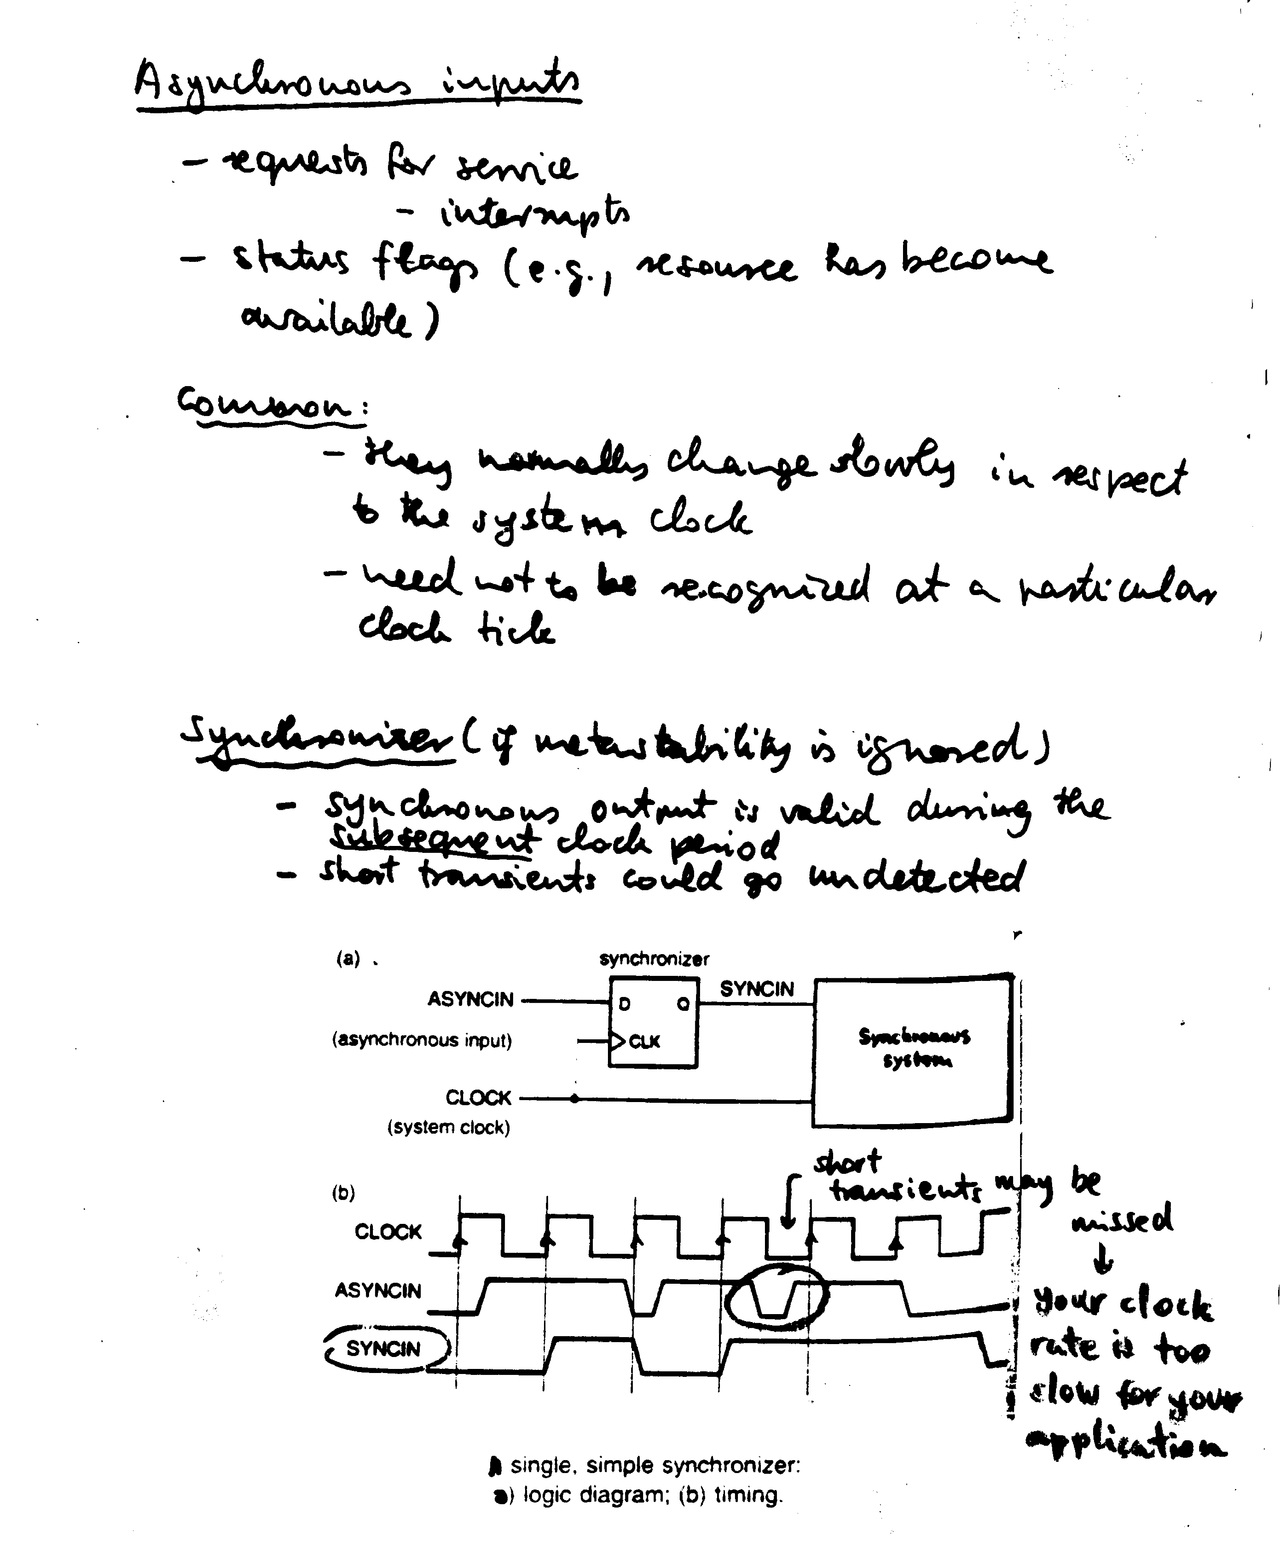 Asynchronous inputs
- requests for service
- interrupts
- status flags (e.g., resource has become
available)
Common:
- they normally change slowly in respect
to the system clock
- need not to be recognized at a particular
clock tick
Synchronizer (if metastability is ignored)
- synchronous output is valid during the
subsequent clock period
- short transients could go undetected
(a)
synchronizer
ASYNCIN
D Q
SYNCIN
(asynchronous input)
CLK
Synchronous
system
CLOCK
(system clock)
(b)
short
transients may be
missed
CLOCK
ASYNCIN
SYNCIN
your clock
rate is too
slow for your
application
A single, simple synchronizer:
a) logic diagram; (b) timing.